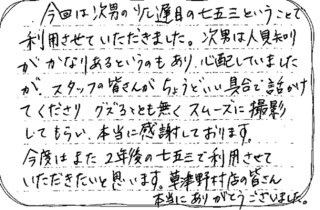 今回は次男の少し遅目の七五三ということで
利用させていただきました。次男は人見知り
がかなりあるというのもあり、心配していました
が、スタッフの皆さんがちょうどいい具合で話かけ
てくださり、グズることも無くスムーズに撮影
してもらい、本当に感謝しております。
今度はまた2年後の七五三で利用させて
いただきたいと思います。草津野村店の皆さん
本当にありがとうございました。